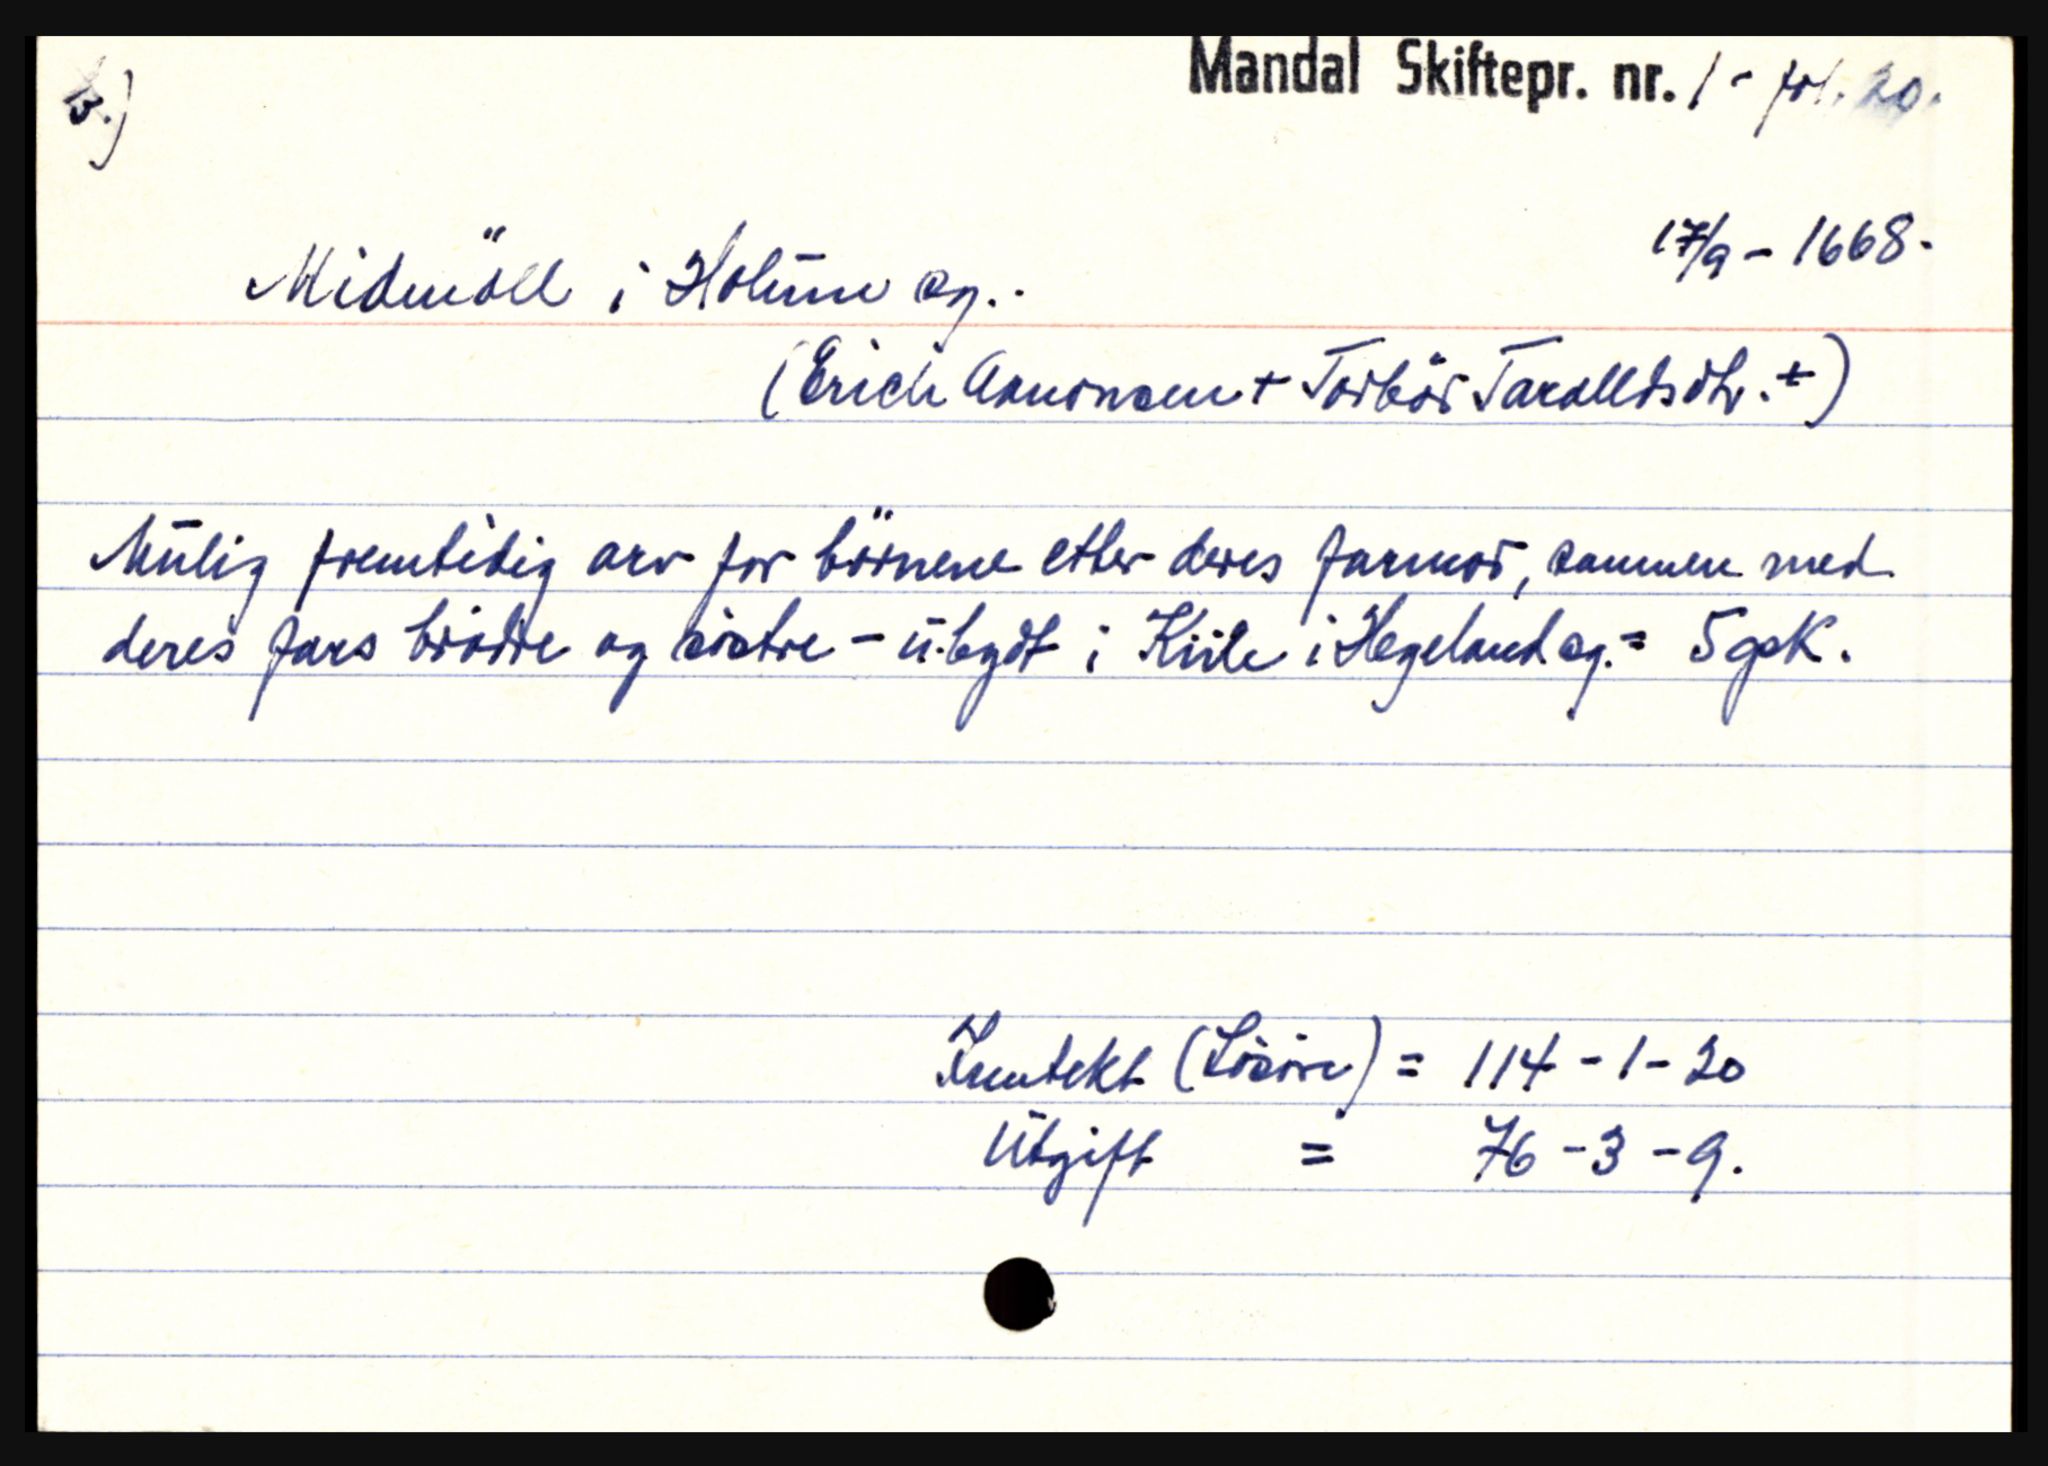 Mandal Skiftepr. nr. 1 - fol. 20.
3.)
17/9 - 1668.
Midmöll i Holūm sg..
(Erich Aanonsen + Torbör Taralldsdtr. ±)
Mūlig fremtidig arv for börnene etter deres farmor, sammen med
deres fars brödre og söstre - ū.bygdt i Kiile i Hegeland sg. = 5 gsk.
Inntekt (Lösöre) = 114 - 1 - 20
Ūtgift = 76 - 3 - 9.